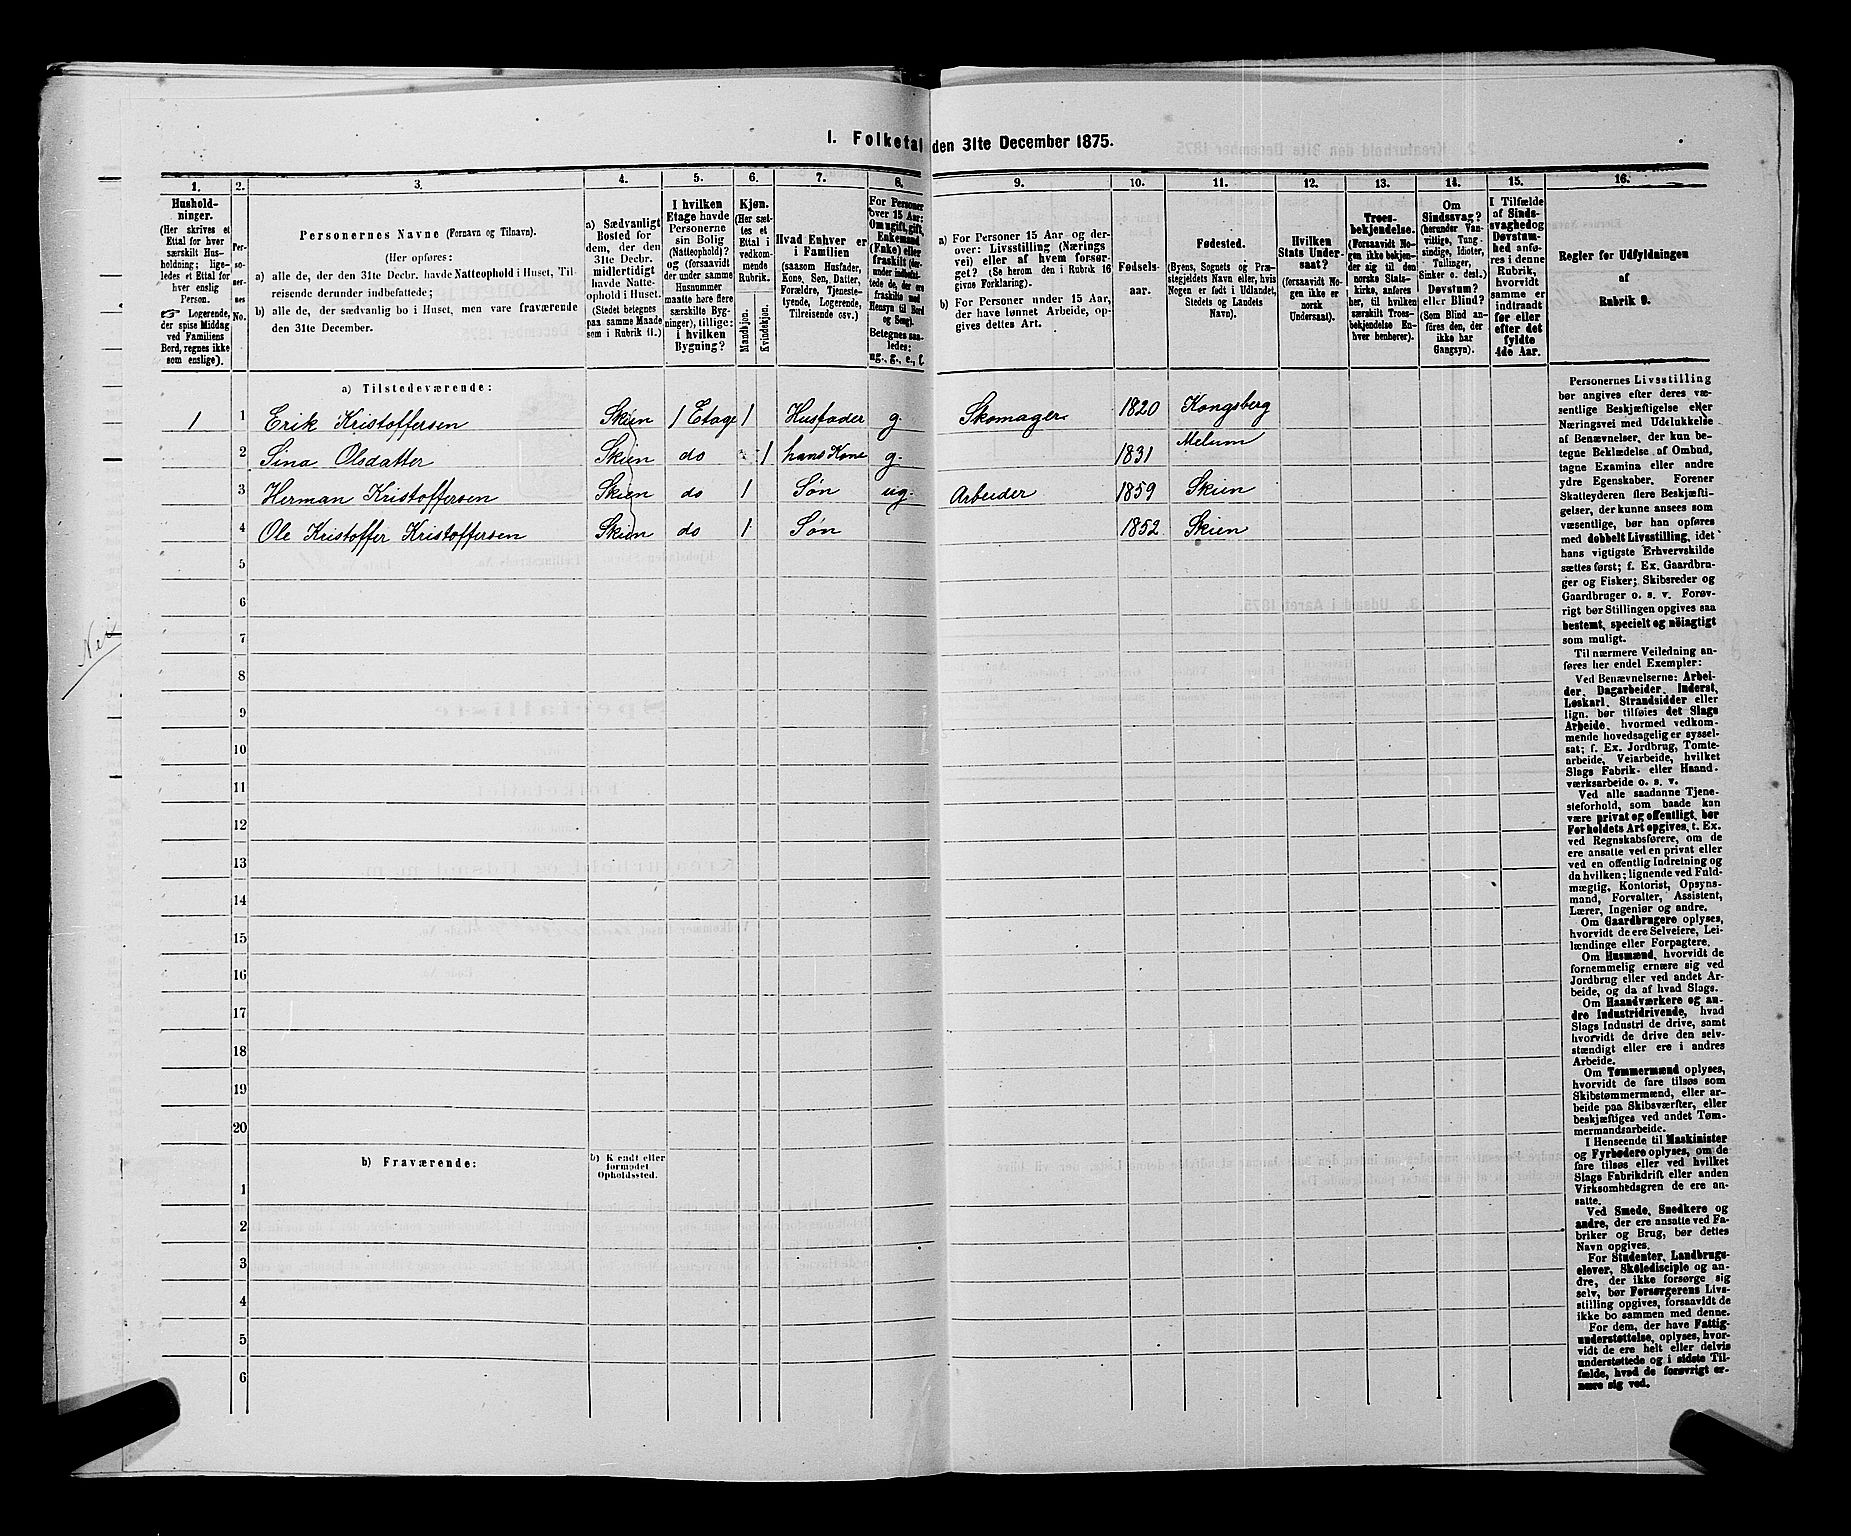 I. Folketal den 31te December 1875.
1. 2. 3. 4. 5. 6. 7. 8. 9. 10. 11. 12. 13. 14. 15. 16.
Hushold-
ninger.
(Her skrives et
Ettal for hver
særskilt Hus-
holdning; lige-
ledes et Ettal for
hver enslig
Person.
☞ Logerende,
der spise Middag
ved Familiens
Bord, regnes ikke
som enslige).
Per-
so-
ner-
nes
No.
Personernes Navne (Fornavn og Tilnavn).
(Her opføres:
a) alle de, der den 31te Decbr. havde Natteophold i Huset, Til-
reisende derunder indbefattede;
b) alle de, der sædvanlig bo i Huset, men vare fraværende
den 31te December.
a) Sædvanligt
Bosted for
dem, der den
31te Decbr.
midlertidigt
havde Natte-
ophold i Huset.
(Stedet betegnes
paa samme Maade
som i Rubrik 11.)
I hvilken
Etage havde
Personerne
sin Bolig
(Natteophold)?
og (forsaavidt
der under samme
Husnummer
maatte høre flere
særskilte Byg-
ninger), tillige:
i hvilken
Bygning?
Kjøn.
(Her sæt-
tes et
Ettal i
vedkom-
mende
Rubrik.
Mandkjøn.
Kvindekjøn.
Hvad Enhver er
i Familien
(saasom Husfader,
Kone, Søn, Datter,
Forældre, Tjeneste-
tyende, Logerende,
Tilreisende osv.)
For Personer
over 15 Aar:
Om ugift, gift,
Enkemand
(Enke) eller
fraskilt (her-
under indbefat-
tede de, der ere
fraskilte med
Hensyn til Bord
og Seng).
Betegnes saa-
ledes:
ug., g., e., f.
a) For Personer 15 Aar og der-
over: Livsstilling (Nærings
vei) eller af hvem forsør-
get? (Se herom den i Rubrik 16
givne Forklaring).
b) For Personer under 15 Aar,
der have lønnet Arbeide, op-
gives dettes Art.
Fødsels-
aar.
Fødested.
(Byens, Sognets og Præ-
stegjeldets Navn eller, hvis
Nogen er født i Udlandet,
Stedets og Landets
Navn).
Hvilken
Stats Under-
saat?
(forsaavidt No-
gen ikke er
norsk
Undersaat).
Troes-
bekjendelse.
(Forsaavidt No-
gen ikke bekjen-
der sig til den
norske Stats-
kirke, anføres
her, til hvilken
særskilt Troes-
bekjendelse En-
hver henhører).
Om
Sindssvag?
(herunder Van-
vittige, Tung-
sindige, Idioter,
Tullinger,
Sinker o. desl.)
Døvstum?
eller Blind?
(Som Blind an-
føres den, der
ikke har
Gangsyn).
I Tilfælde
af Sinds-
svaghed og
Døvstum-
hed anfø-
res i denne
Rubrik,
hvorvidt
samme er
indtraadt
før eller
efter det
fyldte
4de Aar.
Regler for Udfyldningen
af
Rubrik 9.
a) Tilstedeværende:
1 1 Erik Kristoffersen Skien 1 Etage 1 Husfader g. Skomager 1820 Kongsberg
2 Sina Olsdatter Skien do 1 hans Kone g. 1831 Melum
3 Herman Kristoffersen Skien do 1 Søn ug. Arbeider 1859 Skien
4 Ole Kristoffer Kristoffersen Skien do 1 Søn 1852 Skien
5
6
7
Nei
8
9
10
11
12
13
14
15
16
17
18
19
20
b) Fraværende:
b) Kjendt eller
formodet
Opholdssted.
1
2
3
4
5
6
Personernes Livsstilling
bør angives efter deres væ-
sentlige Beskjæftigelse eller
Næringsvei med Udelukkelse
af Benævnelser, der kun be-
tegne Beklædelse af Ombud,
tagne Examina eller andre
ydre Egenskaber. Forener
Skatteyderen flere Beskjæfti-
gelser, der kunne ansees som
væsentlige, bør han opføres
med dobbelt Livsstilling, idet
hans vigtigste Erhvervskilde
sættes først; f. Ex. Gaardbru-
ger og Fisker; Skibsreder og
Gaardbruger o. s. v. Forøv-
rigt bør Stillingen opgives saa
bestemt, specielt og nøiagtigt
som muligt.
Til nærmere Veiledning an-
føres her endel Exempler:
Ved Benævnelserne: Arbei-
der, Dagarbeider, Inderst,
Løskarl, Strandsidder eller
lign. bør tilføies det Slags
Arbeide, hvormed vedkom-
mende hovedsagelig er syssel-
sat; f. Ex. Jordbrug, Tomte-
arbeide, Veiarbeide, hvilket
Slags Fabrik- eller Haand-
værksarbeide o. s. v.
Ved alle saadanne Tjene-
steforhold, som baade kan
være privat og offentligt, bør
Forholdets Art opgives, t. Ex.
ved Regnskabsførere, om de
ere ansatte ved en privat eller
ved en offentlig Indretning og
da hvilken; lignende ved Fuld-
mægtig, Kontorist, Opsyns-
mand, Forvalter, Assistent,
Lærer, Ingeniør og andre.
Om Gaardbrugere oplyses,
hvorvidt de ere Selveiere, Lei-
lændinge eller Forpagtere.
Om Husmænd, hvorvidt de
fornemmelig ernære sig ved
Jordbrug eller ved andet Ar-
beide, og da af hvad Slags.
Om Haandværkere og an-
dre Industridrivende, hvad
Slags Industri de drive, samt
hvorvidt de drive den selv-
stændigt eller ere i andres
Arbeide.
Om Tømmermænd oplyses,
hvorvidt de fare tilsøs som
Skibstømmermænd, eller ar-
beide paa Skibsværfter, eller
beskjæftiges ved andet Tøm-
mermandsarbeide.
I Henseende til Maskinister
og Fyrbødere oplyses, om de
fare tilsøs eller ved hvilket
Slags Fabrikdrift eller anden
Virksomhedsgren de ere an-
satte.
Ved Smede, Snedkere og
andre, der ere ansatte ved Fa-
briker og Brug, bør dettes
Navn opgives.
For Studenter, Landbrugs-
elever, Skoledisciple og an-
dre, der ikke forsørge sig
selv, bør Forsørgerens Livs-
stilling opgives, forsaavidt de
ikke bo sammen med denne.
For dem, der have Fattig-
understøttelse, oplyses, hvor-
vidt de ere helt eller delvis
understøttede og i sidste Til-
fælde, hvad de forøvrigt er-
nære sig ved.